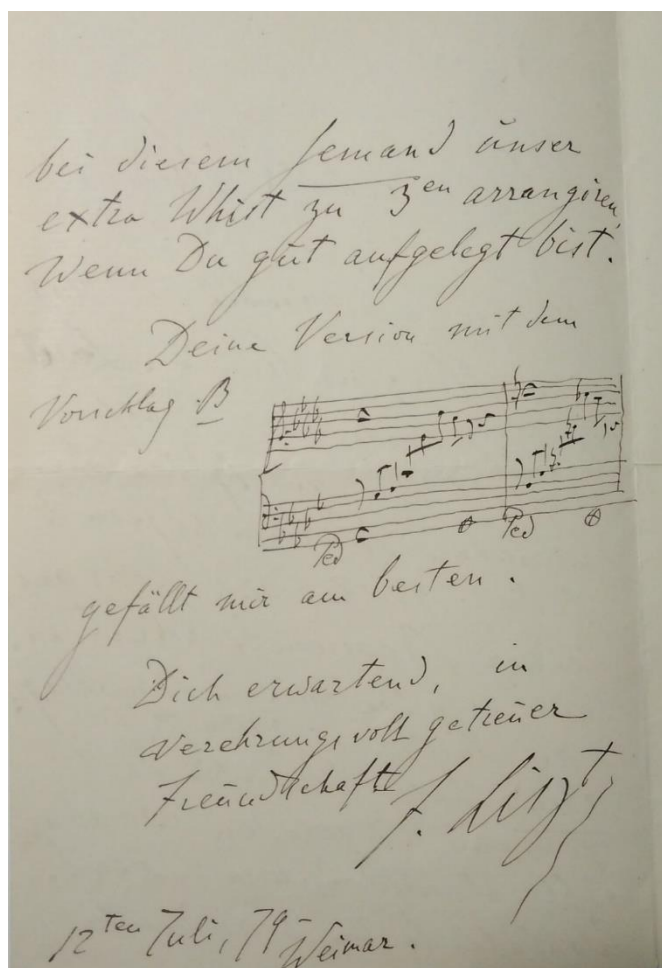 bei diesem Jemand unser
extra Whist zu 3en arrangiren,
Wenn Du gut aufgelegt bist.
Deine Version mit dem
Vorschlag B
Ped Ped
gefällt mir am besten.
Dich erwartend, in
verehrungsvoll getreuer
Freundschaft
F. Liszt
12ten Juli, 79 – Weimar.